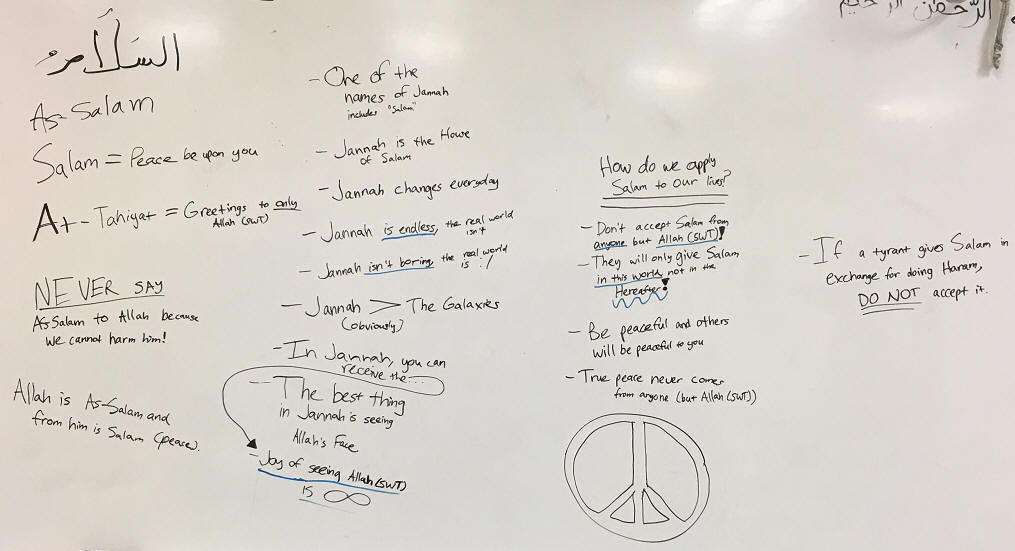 الرَّحْمٰن الرَّحيم
السَّلَامُ
As-Salam
Salam = Peace be upon you
At-Tahiyat = Greetings to only
Allah (SWT)
NEVER SAY
As-Salam to Allah because
we cannot harm him!
Allah is As-Salam and
from him is Salam (peace).
- One of the
names of Jannah
includes "Salam"
- Jannah is the House
of Salam
- Jannah changes everyday
- Jannah is endless, the real world
isn't
- Jannah isn't boring, the real world
is :/
- Jannah > The Galaxies
(obviously)
- In Jannah, you can
receive the...
- The best thing
in Jannah is seeing
Allah's Face
- Joy of seeing Allah (SWT)
is ∞
How do we apply
Salam to our lives?
- Don't accept Salam from
anyone but Allah (SWT)!
- They will only give Salam
in this world, not in the
Hereafter!
- Be peaceful and others
will be peaceful to you
- True peace never comes
from anyone (but Allah (SWT))
- If a tyrant gives Salam in
exchange for doing Haram,
DO NOT accept it.